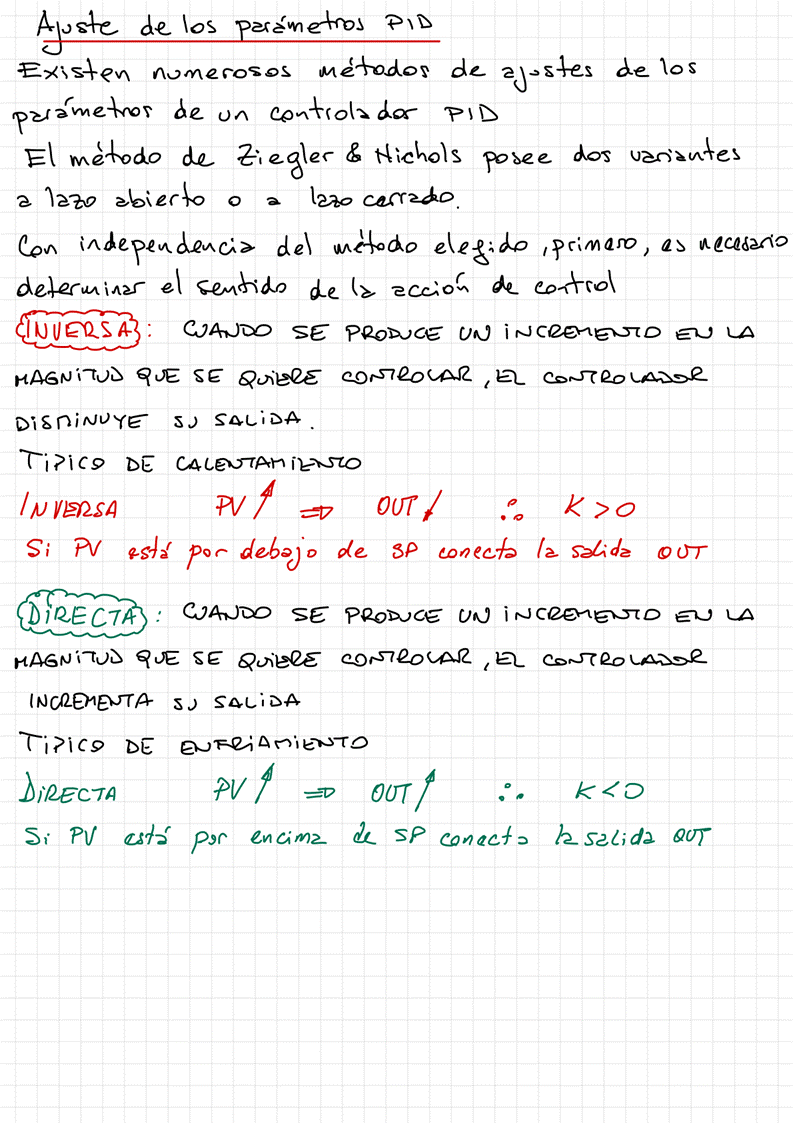 Ajuste de los parámetros PID
Existen numerosos métodos de ajustes de los
parámetros de un controlador PID
El método de Ziegler & Nichols posee dos variantes
a lazo abierto o a lazo cerrado.
Con independencia del método elegido, primero, es necesario
determinar el sentido de la acción de control
INVERSA: CUANDO SE PRODUCE UN INCREMENTO EN LA
MAGNITUD QUE SE QUIERE CONTROLAR, EL CONTROLADOR
DISMINUYE SU SALIDA.
TIPICO DE CALENTAMIENTO
INVERSA PV ↑ ⇒ OUT ↓ ∴ K > 0
Si PV está por debajo de SP conecta la salida OUT
DIRECTA: CUANDO SE PRODUCE UN INCREMENTO EN LA
MAGNITUD QUE SE QUIERE CONTROLAR, EL CONTROLADOR
INCREMENTA SU SALIDA
TIPICO DE ENFRIAMIENTO
DIRECTA PV ↑ ⇒ OUT ↑ ∴ K < 0
Si PV está por encima de SP conecta la salida OUT